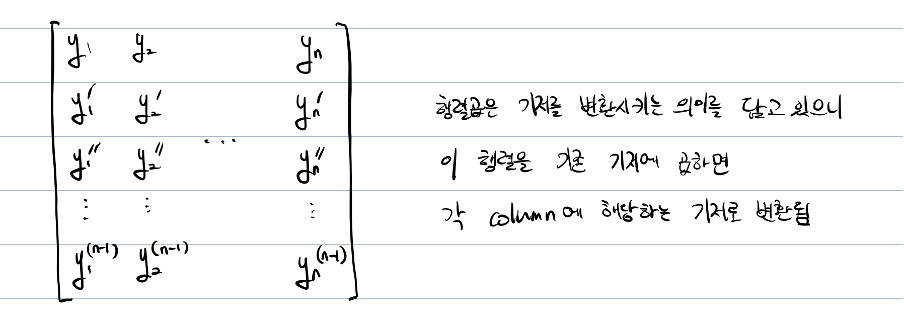 y₁ y₂ yₙ
y₁′ y₂′ yₙ′
y₁″ y₂″ ⋯ yₙ″
⋮ ⋮ ⋮
y₁⁽ⁿ⁻¹⁾ y₂⁽ⁿ⁻¹⁾ yₙ⁽ⁿ⁻¹⁾
행렬곱은 기저를 변환시키는 의미를 담고 있으니
이 행렬을 기존 기저에 곱하면
각 column에 해당하는 기저로 변환됨